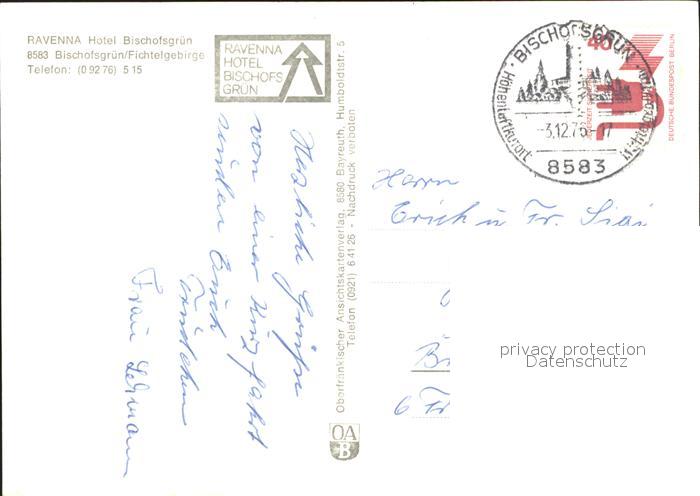 RAVENNA Hotel Bischofsgrün
8583 Bischofsgrün/Fichtelgebirge
Telefon: (0 92 76) 5 15
RAVENNA
HOTEL
BISCHOFS
GRÜN
Herzliche Grüße
von einer Kurzfahrt
senden Euch
Frau Lehmann
Oberfränkischer Ansichtskartenverlag, 8580 Bayreuth, Humboldtstr. 5
Telefon (0921) 6 41 26 - Nachdruck verboten
OA
B
BISCHOFSGRÜN
Höhenluftkurort
-3.12.75-17
8583
40
DEUTSCHE BUNDESPOST BERLIN
Herrn
Erich u. Fr.
6 Fr
privacy protection
Datenschutz